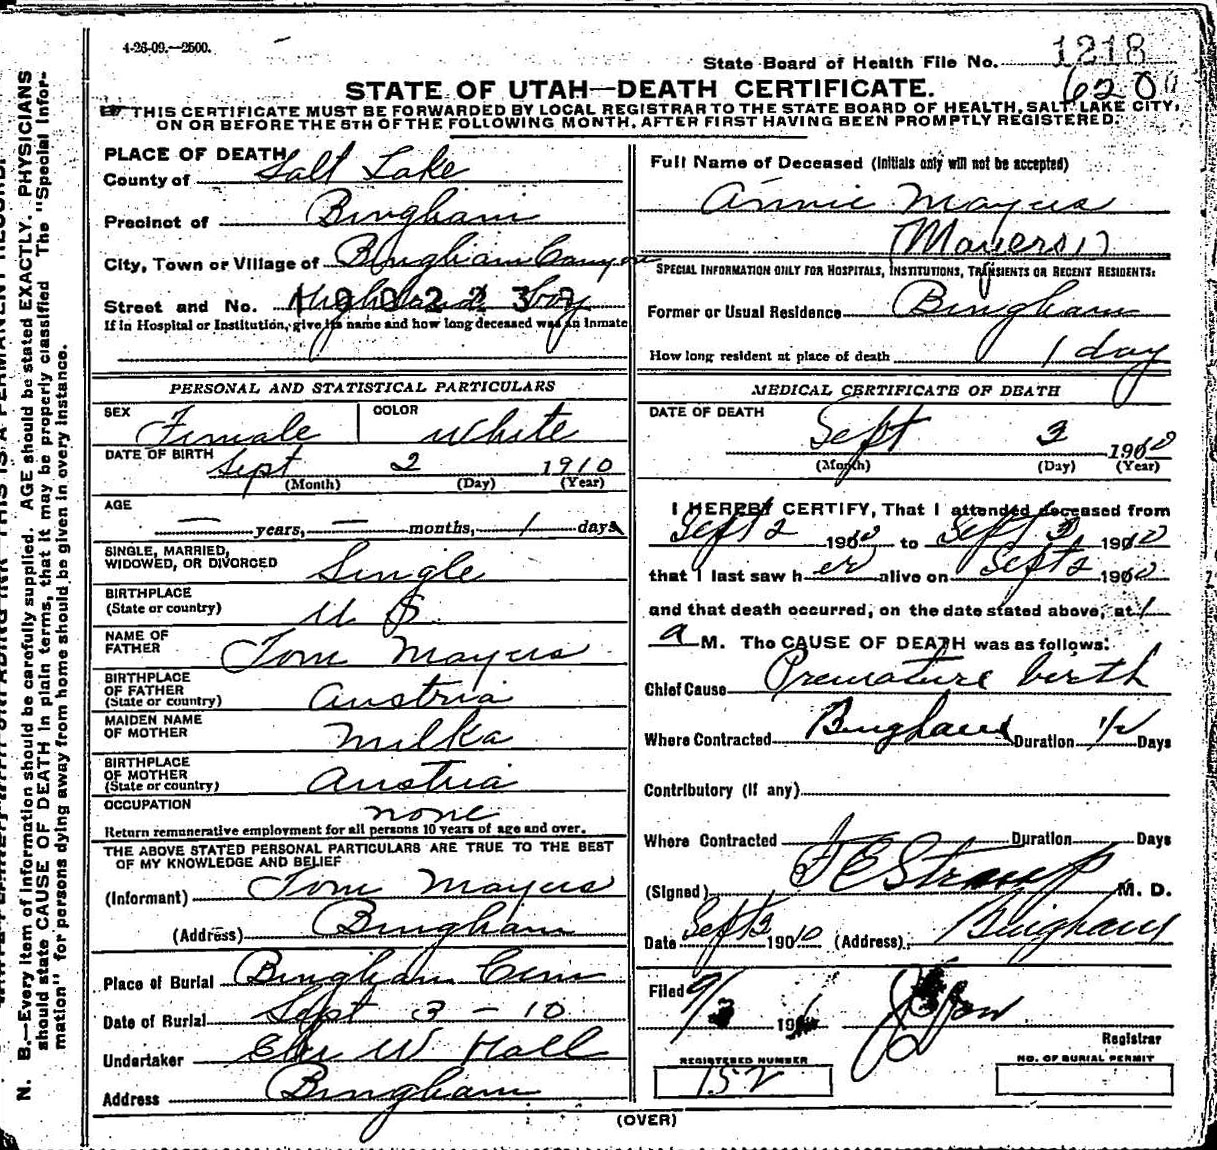 4-26-09.—2500.
State Board of Health File No. 1218
6200
STATE OF UTAH—DEATH CERTIFICATE.
THIS CERTIFICATE MUST BE FORWARDED BY LOCAL REGISTRAR TO THE STATE BOARD OF HEALTH, SALT LAKE CITY,
ON OR BEFORE THE 5TH OF THE FOLLOWING MONTH, AFTER FIRST HAVING BEEN PROMPTLY REGISTERED.
PLACE OF DEATH
County of Salt Lake
Precinct of Bingham
City, Town or Village of Bingham Canyon
Street and No. Highland Boy
If in Hospital or Institution, give its name and how long deceased was an Inmate
PERSONAL AND STATISTICAL PARTICULARS
SEX Female COLOR White
DATE OF BIRTH Sept 2 1910
(Month) (Day) (Year)
AGE
— years, — months, 1 days
SINGLE, MARRIED,
WIDOWED, OR DIVORCED Single
BIRTHPLACE
(State or country) U S
NAME OF
FATHER Tom Mayers
BIRTHPLACE
OF FATHER
(State or country) Austria
MAIDEN NAME
OF MOTHER Milka
BIRTHPLACE
OF MOTHER
(State or country) Austria
OCCUPATION none
Return remunerative employment for all persons 10 years of age and over.
THE ABOVE STATED PERSONAL PARTICULARS ARE TRUE TO THE BEST
OF MY KNOWLEDGE AND BELIEF
(Informant) Tom Mayers
(Address) Bingham
Place of Burial Bingham Cem
Date of Burial Sept 3 - 10
Undertaker W Hall
Address Bingham
Full Name of Deceased (Initials only will not be accepted)
Annie Mayers
(Mayers)
SPECIAL INFORMATION ONLY FOR HOSPITALS, INSTITUTIONS, TRANSIENTS OR RECENT RESIDENTS:
Former or Usual Residence Bingham
How long resident at place of death 1 day
MEDICAL CERTIFICATE OF DEATH
DATE OF DEATH
Sept 3 1910
(Month) (Day) (Year)
I HEREBY CERTIFY, That I attended deceased from
Sept 2 1910 to Sept 3 1910
that I last saw h er alive on Sept 2 1910
and that death occurred, on the date stated above, at 1
a M. The CAUSE OF DEATH was as follows:
Chief Cause Premature birth
Where Contracted Bingham Duration 1/2 Days
Contributory (If any)
Where Contracted Duration Days
(Signed) F E Straup M. D.
Date Sept 3 1910 (Address) Bingham
Filed 9/3 19
Registrar
REGISTERED NUMBER
152
NO. OF BURIAL PERMIT
(OVER)
N. B.—Every item of information should be carefully supplied. AGE should be stated EXACTLY. PHYSICIANS
should state CAUSE OF DEATH in plain terms, that it may be properly classified The "Special Infor-
mation" for persons dying away from home should be given in every instance.